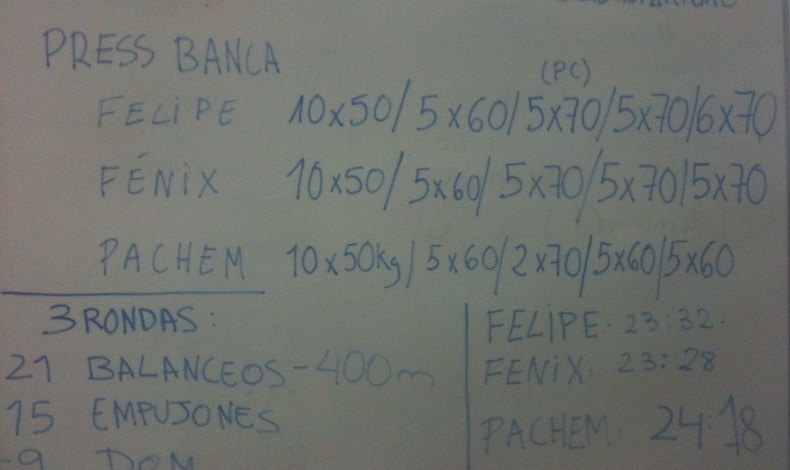 PRESS BANCA
(PC)
FELIPE 10x50/5x60/5x70/5x70/6x70
FÉNIX 10x50/5x60/5x70/5x70/5x70
PACHEM 10x50kg/5x60/2x70/5x60/5x60
3 RONDAS:
21 BALANCEOS-400m
15 EMPUJONES
9 DOM
FELIPE: 23:32.
FENIX: 23:28
PACHEM: 24:18